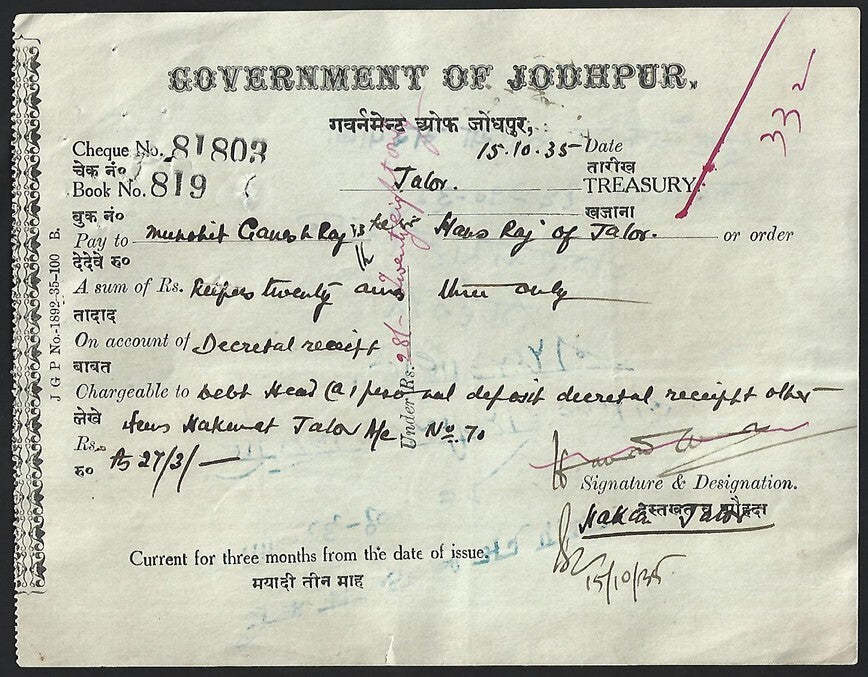 GOVERNMENT OF JODHPUR.
गवर्नमेन्ट ओफ जोधपुर,
332
Cheque No. 81803
15.10.35 Date
चेक नं०
तारीख
Book No. 819
Jalor. TREASURY
बुक नं०
खजाना
Pay to Ganesh Raj Hans Raj of Jalor. or order
देदेवे रु०
A sum of Rs. three only
तादाद
On account of Decretal receipt
बाबत
Chargeable to Debt Head (a) personal deposit decretal receipt other
लेखे
Hakumat Jalor A/c No. 70
Rs. 27/3/-
रु०
Under Rs. 28/- Twenty eight only
J G P No.-1892-35-100 B.
Signature & Designation.
दस्तखत व औहदा
Jalor
15/10/35
Current for three months from the date of issue.
मयादी तीन माह